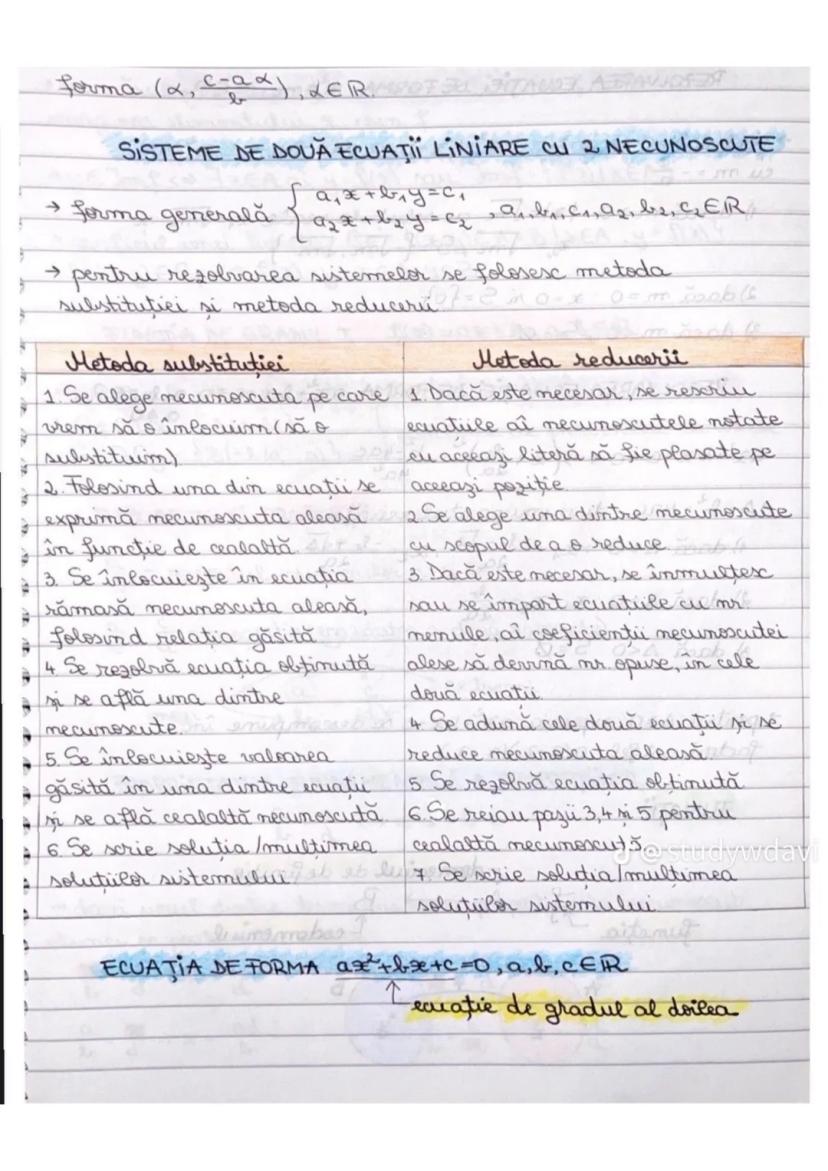 forma (α, c-aα/b), α∈ℝ.
SISTEME DE DOUĂ ECUAȚII LINIARE CU 2 NECUNOSCUTE
→ forma generală { a₁x+b₁y=c₁
a₂x+b₂y=c₂ , a₁,b₁,c₁,a₂,b₂,c₂∈ℝ
→ pentru rezolvarea sistemelor se folosesc metoda
substituției și metoda reducerii.
Metoda substituției
1. Se alege necunoscuta pe care
vrem să o înlocuim (să o
substituim)
2. Folosind una din ecuații se
exprimă necunoscuta aleasă
în funcție de cealaltă.
3. Se înlocuiește în ecuația
rămasă necunoscuta aleasă,
folosind relația găsită.
4. Se rezolvă ecuația obținută
și se află una dintre
necunoscute.
5. Se înlocuiește valoarea
găsită în una dintre ecuații
și se află cealaltă necunoscută.
6. Se scrie soluția/mulțimea
soluțiilor sistemului.
Metoda reducerii
1. Dacă este necesar, se rescriu
ecuațiile aî necunoscutele notate
cu aceeași literă să fie plasate pe
aceeași poziție.
2. Se alege una dintre necunoscute
cu scopul de a o reduce.
3. Dacă este necesar, se înmulțesc
sau se împart ecuațiile cu nr.
nenule, aî coeficienții necunoscutei
alese să devină nr. opuse, în cele
două ecuații.
4. Se adună cele două ecuații și se
reduce necunoscuta aleasă.
5. Se rezolvă ecuația obținută.
6. Se reiau pașii 3,4 și 5 pentru
cealaltă necunoscută.
7. Se scrie soluția/mulțimea
soluțiilor sistemului.
@studywdavi
ECUAȚIA DE FORMA ax²+bx+c=0, a,b,c∈ℝ
ecuație de gradul al doilea